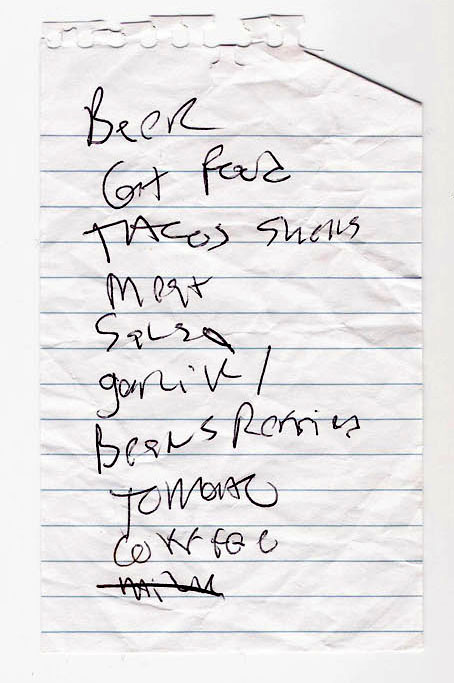 Beer
Cat food
TACOS Shells
Meat
Salsa
garlik /
Beans Refried
TOMATO
Coffee